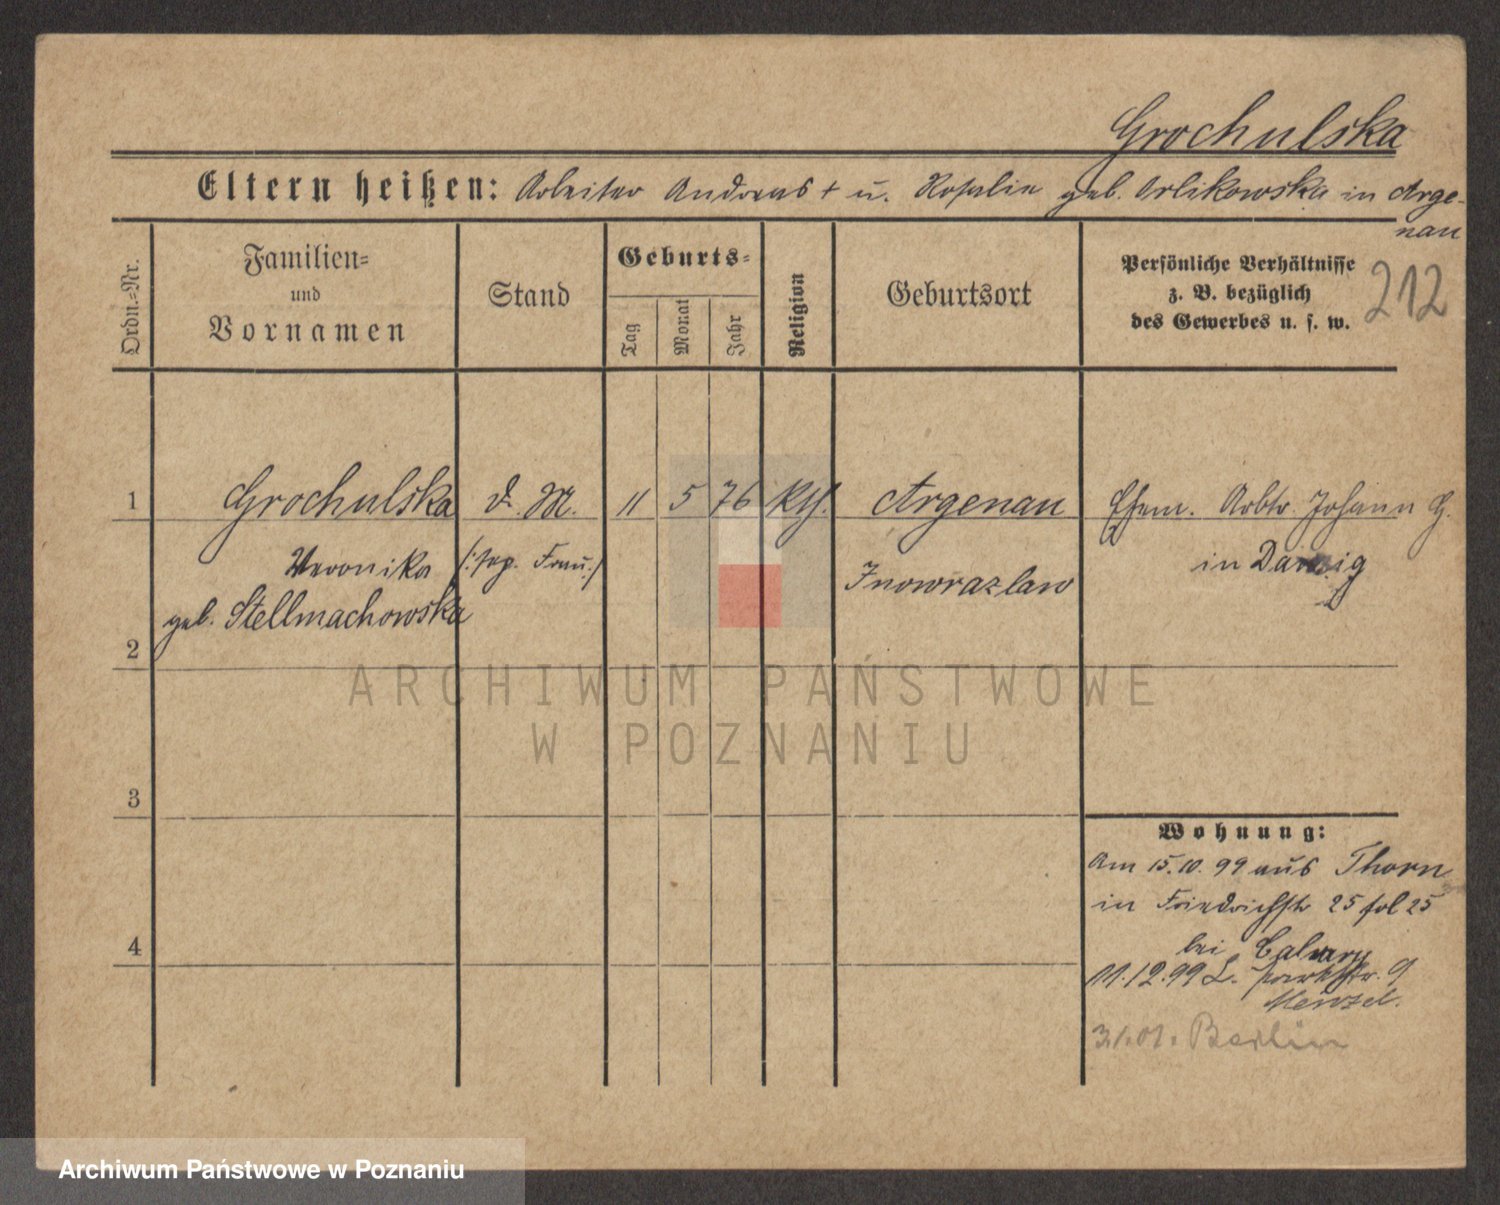 Grochulska
Eltern heißen: Arbeiter Andreas + u. Rosalie geb. Orlikowska in Arge-
nau
Ordn.=Nr.
Familien=
und
Vornamen
Stand
Geburts=
Tag
Monat
Jahr
Religion
Geburtsort
Persönliche Verhältnisse
z. B. bezüglich
des Gewerbes u. s. w.
212
1 Grochulska d. M. 11 5 76 kth. Argenau Ehem. Arbtr. Johann G.
Veronika /:sep. Frau:/ Inowrazlaw in Danzig
geb. Stellmachowska
2
3
4
Wohnung:
Am 15.10.99 aus Thorn
in Friedrichstr 25 fol 25
bei Calvary
11.12.99 L. parkstr. 9
Menzel.
31.01. Berlin
ARCHIWUM PAŃSTWOWE
W POZNANIU
Archiwum Państwowe w Poznaniu